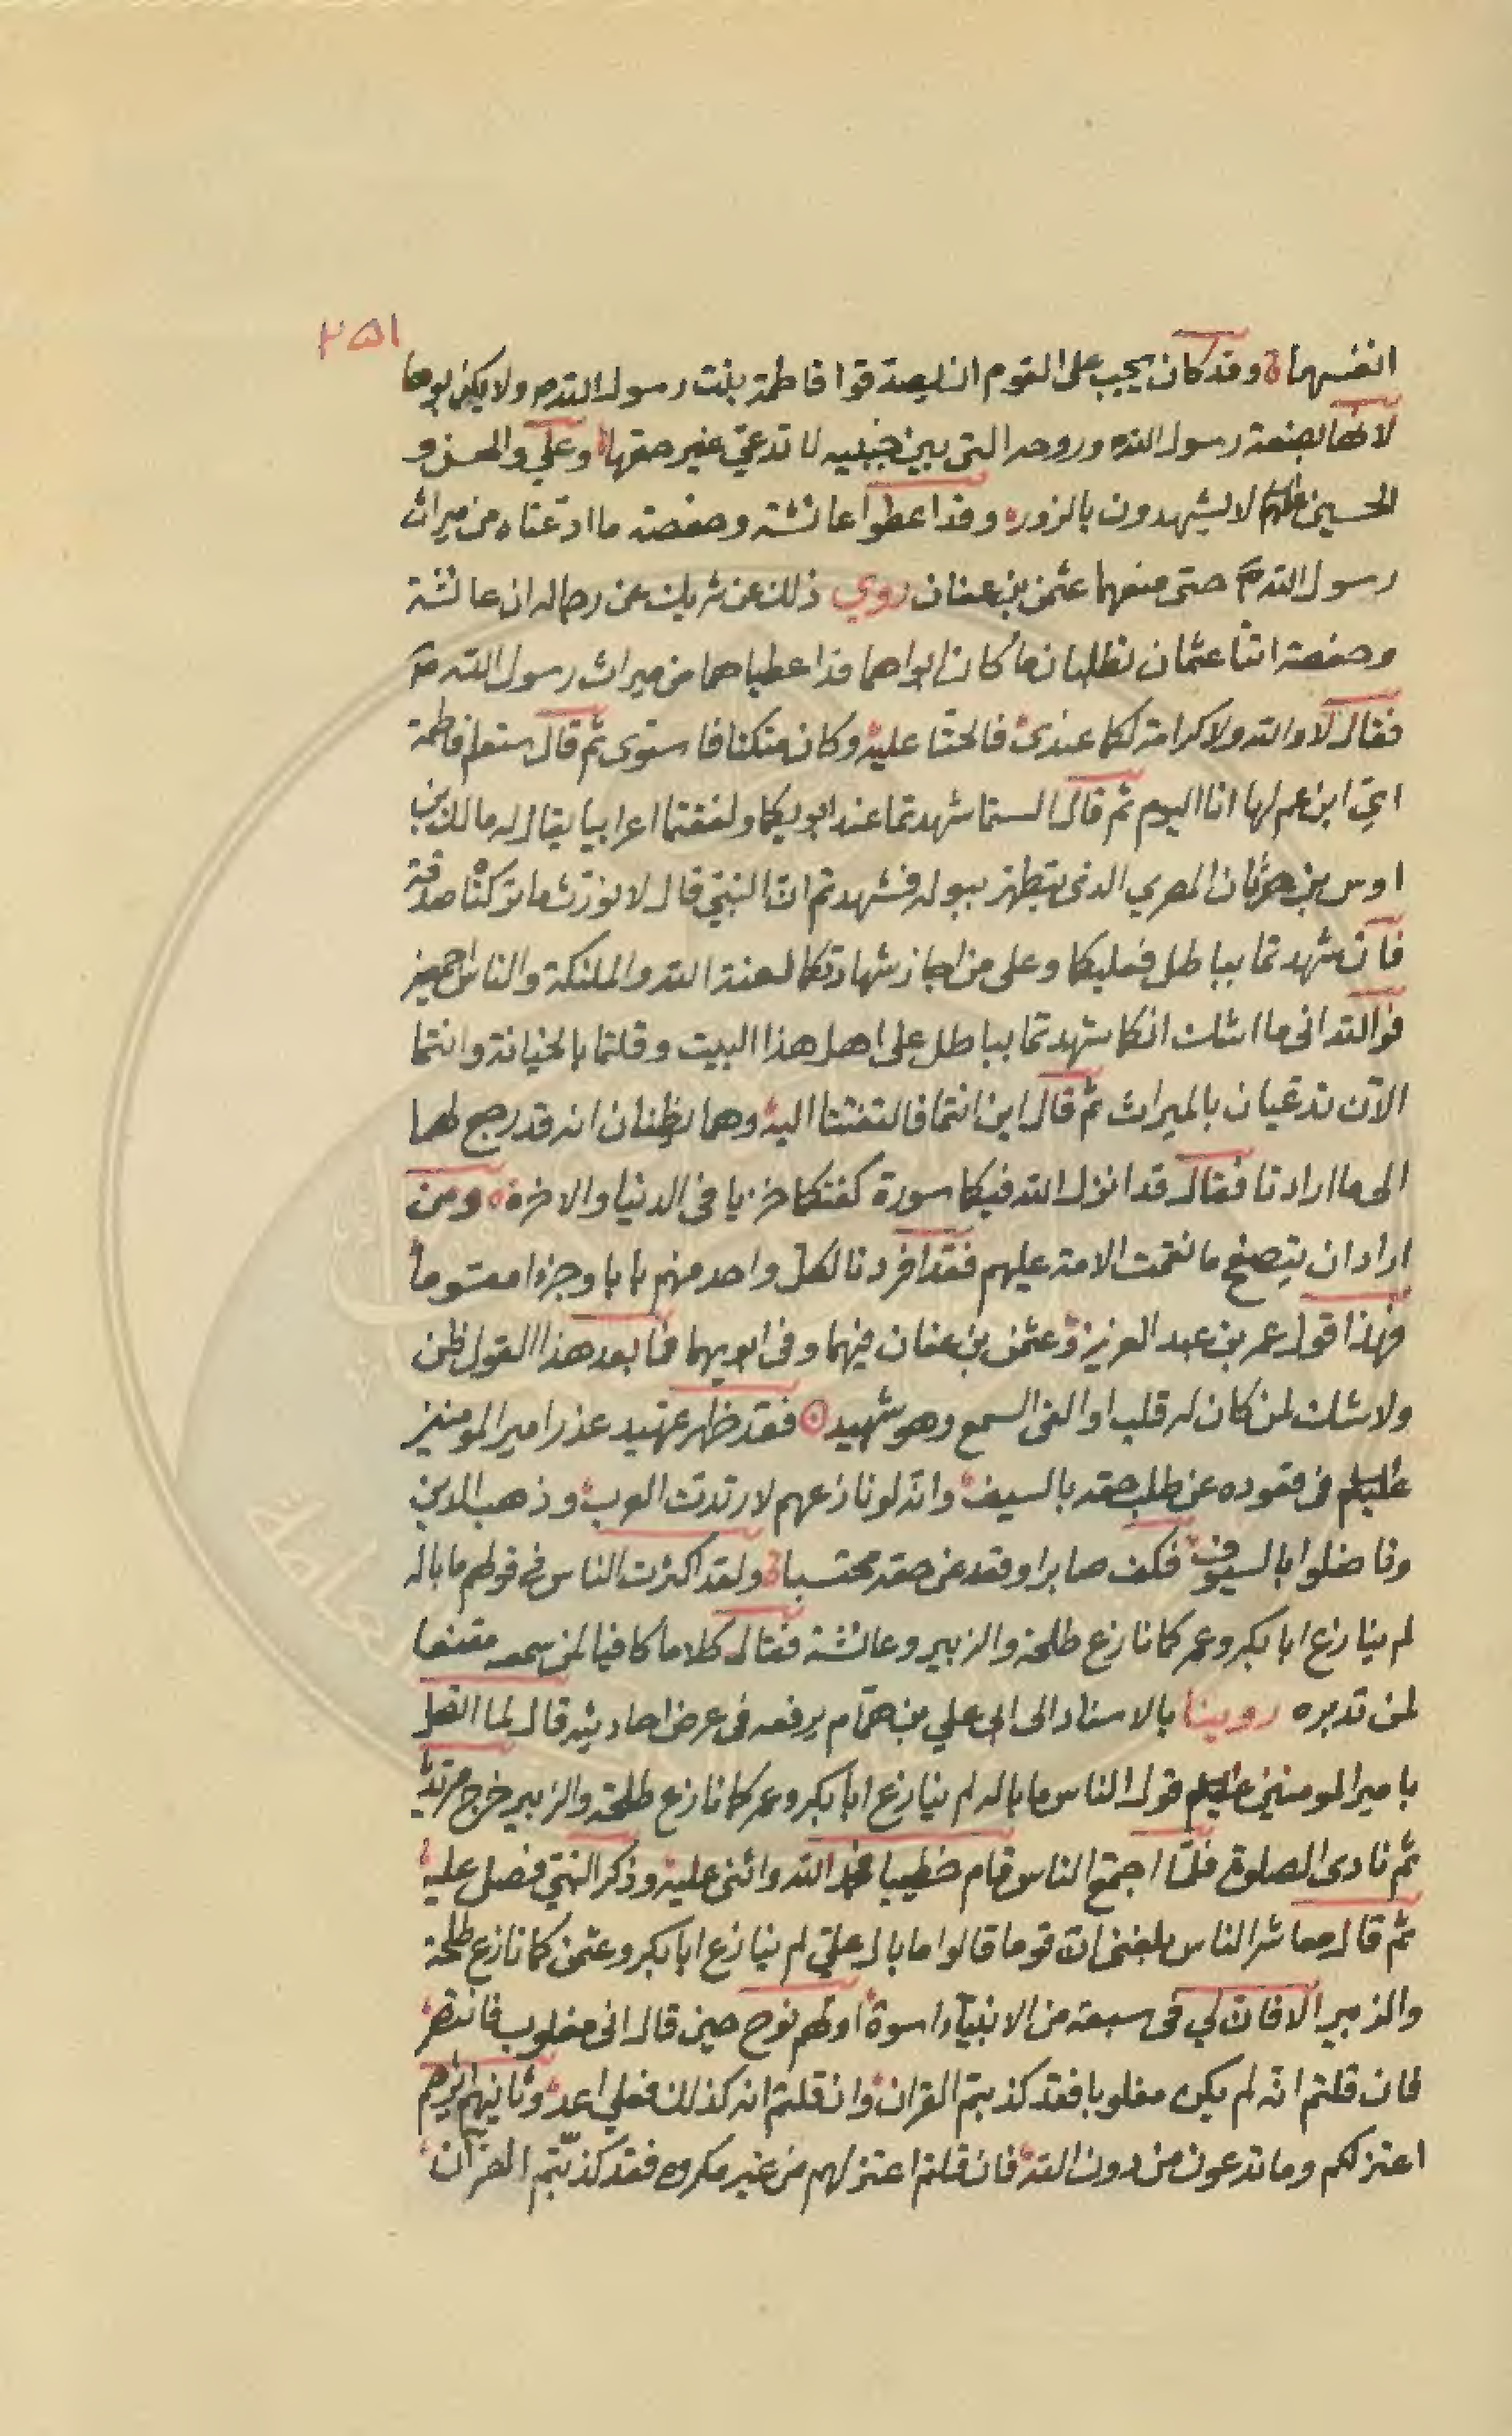 ٢٥١
انفسهما وقد كان يجب على القوم ان يصدقوا فاطمة بنت رسول الله ص ولا يكذبوها
لانها بضعة رسول الله وروحه التي بين جنبيه لا تدعي غير حقها وعلي والحسن و
الحسين عليهم لا يشهدون بالزور وقد اعطوا عائشة وحفصة ما ادعتاه من ميراث
رسول الله ص حتى منعهما عثمن بن عفان روي ذلك عن شريك عن رجاله ان عائشة
وحفصة اتتا عثمان تطلبان ما كان ابواهما قد اعطياهما من ميراث رسول الله ص
فقال لا والله ولا كرامة لكما عندي فالحتا عليه وكان متكئا فاستوى ثم قال ستعلم فاطمة
اي ابن عم لها انا اليوم ثم قال الستما شهدتما عند ابويكما ولفقتما اعرابيا يقال له مالك بن
اوس بن حدثان الذي يتطهر ببوله فشهدتم ان النبي قال لا نورث ما تركنا صدقة
فان شهدتما بباطل فعليكما وعلى من اجاز شهادتكما لعنة الله والملئكة والناس اجمعين
فوالله اني ما اشك انكما شهدتما بباطل على اهل هذا البيت وقلتما بالخيانة وانتما
الآن تدعيان بالميراث ثم قال اين انتما فالتفتتا اليه وهما يظنان انه قد رجع لهما
الى ما ارادتا فقال قد انزل الله فيكما سورة كفتكما خزيا في الدنيا والاخرة ومن
اراد ان يتصفح ما نقمت الامة عليهم فقد افردنا لكل واحد منهم بابا وجزءا مقسوما
فهذا قول عمر بن عبد العزيز وعثمن بن عفان فيهما وفي ابويهما فما بعد هذا القول ظن
ولا شك لمن كان له قلب او القى السمع وهو شهيد فقد ظهر عذر امير المومنين
عليلم في قعوده عن طلب حقه بالسيف وانه لو نازعهم لارتدت العرب وذهب الدين
وناضلوا بالسيوف فكف صابرا وقعد عن حقه محتسبا ولقد اكثرت الناس في قولهم ما باله
لم ينازع ابا بكر وعمر كما نازع طلحة والزبير وعائشة فقال كلاما كافيا لمن سمعه مقنعا
لمن تدبره روينا بالاسناد الى ابي علي بن همام يرفعه في عرض احاديثه قال لما اتصل
بامير المومنين عليلم قول الناس ما باله لم ينازع ابا بكر وعمر كما نازع طلحة والزبير خرج مرتديا
ثم نادى الصلوة فلما اجتمع الناس قام خطيبا فحمد الله واثنى عليه وذكر النبي فصلى عليه
ثم قال معاشر الناس بلغني ان قوما قالوا ما بال علي لم ينازع ابا بكر وعثمن كما نازع طلحة
والزبير الا فان لي في سبعة من الانبياء اسوة اولهم نوح حين قال اني مغلوب فانتصر
فان قلتم انه لم يكن مغلوبا فقد كذبتم القران وان قلتم انه كذلك فعلي اعذر وثانيهم ابرهيم
اعتزلكم وما تدعون من دون الله فان قلتم اعتزلهم من غير مكروه فقد كذبتم القرآن